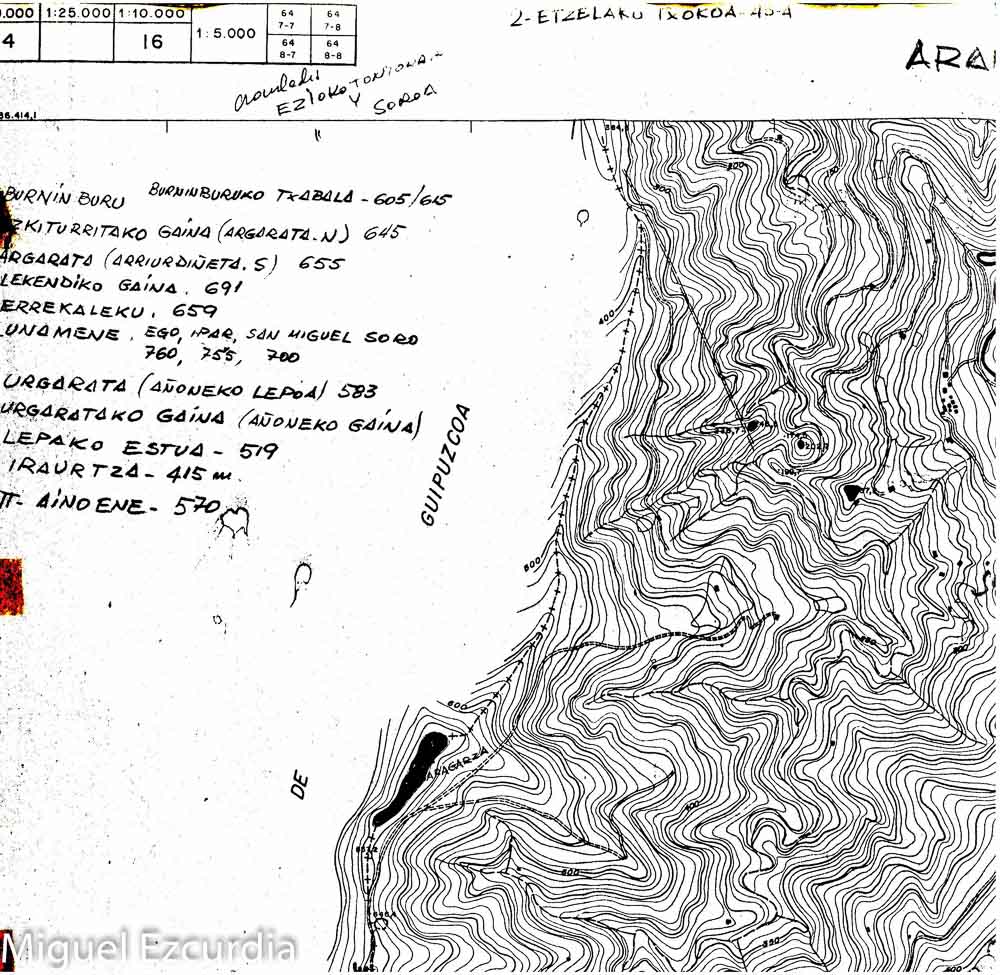 1:25.000 1:10.000 1:5.000 64 7-7 64 7-8
4 16 64 8-7 64 8-8
2-ETZELAKU TXOKOA-45-A
ARA
EZIOKO TONTONA
Y SOROA
36.414,1
BURNIN BURU BURNINBURUKO TXABALA - 605/615
ZKITURRITAKO GAINA (ARGARATA.N) 645
ARGARATA (ARRIURDIÑETA.S) 655
LEKENDIKO GAINA. 691
ERREKALEKU. 659
UNAMENE. EGO, IPAR, SAN MIGUEL SORO
760, 755, 700
URGARATA (AÑONEKO LEPOA) 583
URGARATAKO GAINA (AÑONEKO GAINA)
LEPAKO ESTUA - 519
IRAURTZA - 415 m.
II- AINOENE - 570
GUIPUZCOA
DE
400
500
600
600
550
Miguel Ezcurdia